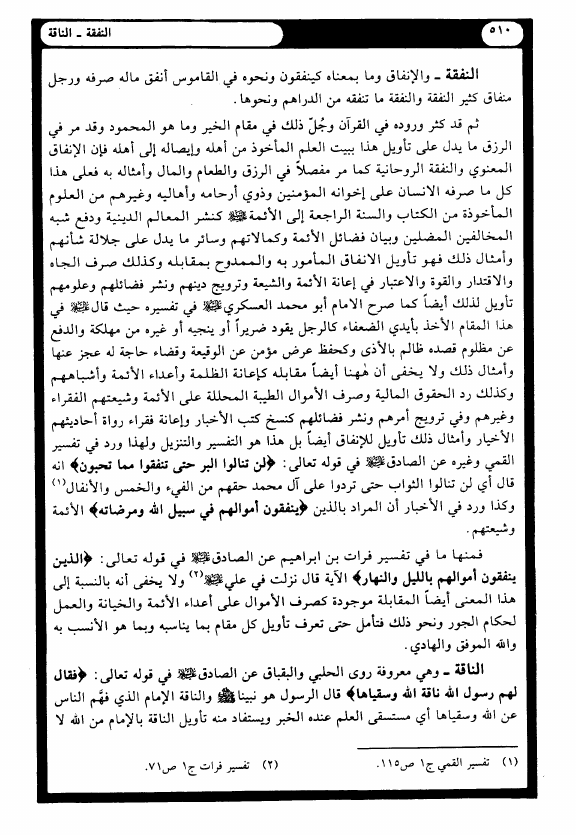 ٥١٠
النفقة ـ الناقة
النفقة ـ والإنفاق وما بمعناه كينفقون ونحوه في القاموس أنفق ماله صرفه ورجل
منفاق كثير النفقة والنفقة ما تنفقه من الدراهم ونحوها.
ثم قد كثر وروده في القرآن وجُلّ ذلك في مقام الخير وما هو المحمود وقد مر في
الرزق ما يدل على تأويل هذا ببيت العلم المأخوذ من أهله وإيصاله إلى أهله فإن الإنفاق
المعنوي والنفقة الروحانية كما مر مفصلاً في الرزق والطعام والمال وأمثاله به فعلى هذا
كل ما صرفه الانسان على إخوانه المؤمنين وذوي أرحامه وأهاليه وغيرهم من العلوم
المأخوذة من الكتاب والسنة الراجعة إلى الأئمة كنشر المعالم الدينية ودفع شبه
المخالفين المضلين وبيان فضائل الأئمة وكمالاتهم وسائر ما يدل على جلالة شأنهم
وأمثال ذلك فهو تأويل الانفاق المأمور به والممدوح بمقابله وكذلك صرف الجاه
والاقتدار والقوة والاعتبار في إعانة الأئمة والشيعة وترويج دينهم ونشر فضائلهم وعلومهم
تأويل لذلك أيضاً كما صرح الامام أبو محمد العسكري في تفسيره حيث قال في
هذا المقام الأخذ بأيدي الضعفاء كالرجل يقود ضريراً أو ينجيه أو غيره من مهلكة والدفع
عن مظلوم قصده ظالم بالأذى وكحفظ عرض مؤمن عن الوقيعة وقضاء حاجة له عجز عنها
وأمثال ذلك ولا يخفى أن هٰهنا أيضاً مقابله كإعانة الظلمة وأعداء الأئمة وأشباههم
وكذلك رد الحقوق المالية وصرف الأموال الطيبة المحللة على الأئمة وشيعتهم الفقراء
وغيرهم وفي ترويج أمرهم ونشر فضائلهم كنسخ كتب الأخبار وإعانة فقراء رواة أحاديثهم
الأخيار وأمثال ذلك تأويل للإنفاق أيضاً بل هذا هو التفسير والتنزيل ولهذا ورد في تفسير
القمي وغيره عن الصادق في قوله تعالى: ﴿لن تنالوا البر حتى تنفقوا مما تحبون﴾ انه
قال أي لن تنالوا الثواب حتى تردوا على آل محمد حقهم من الفيء والخمس والأنفال(١)
وكذا ورد في الأخبار أن المراد بالذين ﴿ينفقون أموالهم في سبيل الله ومرضاته﴾ الأئمة
وشيعتهم.
فمنها ما في تفسير فرات بن ابراهيم عن الصادق في قوله تعالى: ﴿الذين
ينفقون أموالهم بالليل والنهار﴾ الآية قال نزلت في علي(٢) ولا يخفى أنه بالنسبة إلى
هذا المعنى أيضاً المقابلة موجودة كصرف الأموال على أعداء الأئمة والخيانة والعمل
لحكام الجور ونحو ذلك فتأمل حتى تعرف تأويل كل مقام بما يناسبه وبما هو الأنسب به
والله الموفق والهادي.
الناقة ـ وهي معروفة روى الحلبي والبقباق عن الصادق في قوله تعالى: ﴿فقال
لهم رسول الله ناقة الله وسقياها﴾ قال الرسول هو نبينا ﷺ والناقة الإمام الذي فهّم الناس
عن الله وسقياها أي مستسقى العلم عنده الخبر ويستفاد منه تأويل الناقة بالإمام من الله لا
(١) تفسير القمي ج١ ص١١٥.
(٢) تفسير فرات ج١ ص٧١.